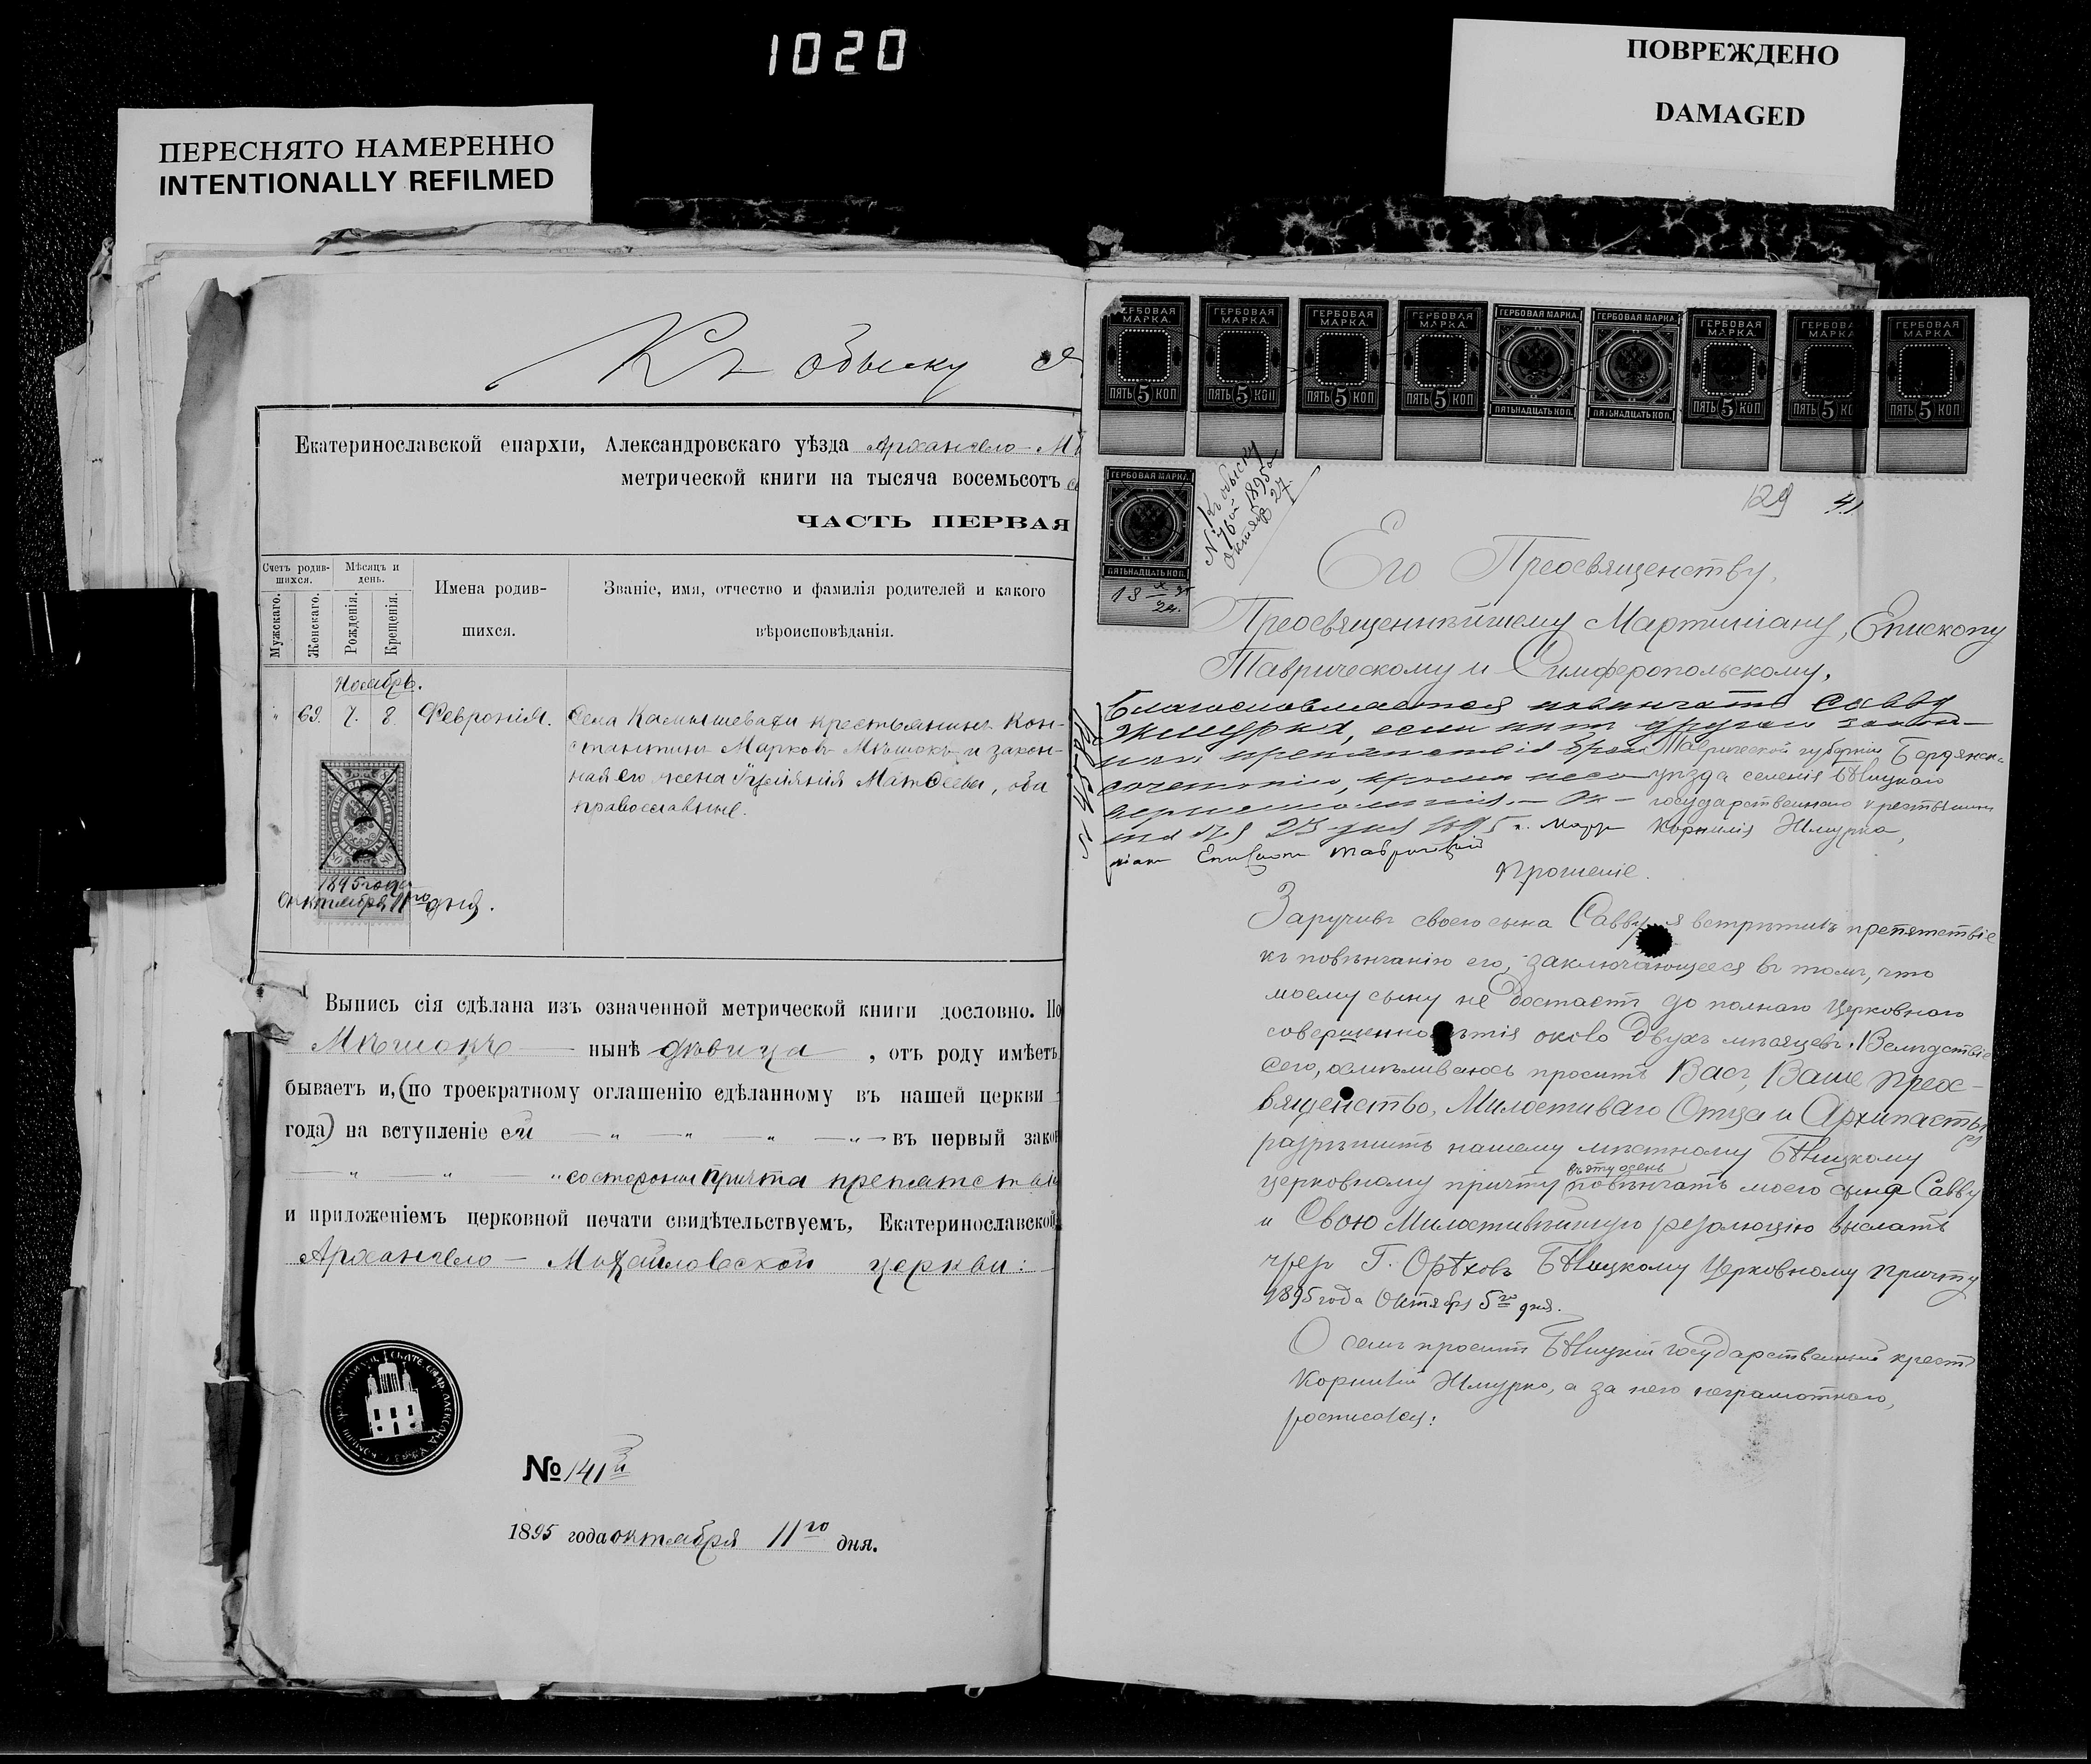 1020
ПЕРЕСНЯТО НАМЕРЕННО
INTENTIONALLY REFILMED
ПОВРЕЖДЕНО
DAMAGED
Къ обыску
Екатеринославской епархіи, Александровскаго уѣзда Архангело-М
метрической книги на тысяча восемьсотъ
ЧАСТЬ ПЕРВАЯ
Счетъ родив-
шихся.
Мужскаго.
Женскаго.
Мѣсяцъ и
день.
Рожденія.
Крещенія.
Имена родив-
шихся.
Званіе, имя, отчество и фамилія родителей и какого
вѣроисповѣданія.
Ноябрь.
" 69. 7. 8. Февронія. Села Камышевати крестьянинъ Кон-
стантинъ Марковъ Мѣшокъ и закон-
ная его жена Матѳеева, оба
православные.
1895 года
Октября 11го дня.
Выпись сія сдѣлана изъ означенной метрической книги дословно. По
Мѣшокъ — нынѣ дѣвица , отъ роду имѣетъ
бываетъ и, (по троекратному оглашенію сдѣланному въ нашей церкви
года) на вступленіе ей — " — " — " — " — въ первый закон
— " — " — " со стороны причта препятствій
и приложеніемъ церковной печати свидѣтельствуемъ, Екатеринославской
Архангело-Михайловской церкви:
№ 141й
1895 года октября 11го дня.
ГЕРБОВАЯ МАРКА. ПЯТЬ 5 КОП
ГЕРБОВАЯ МАРКА. ПЯТЬ 5 КОП
ГЕРБОВАЯ МАРКА. ПЯТЬ 5 КОП
ГЕРБОВАЯ МАРКА. ПЯТЬ 5 КОП
ГЕРБОВАЯ МАРКА. ПЯТЬНАДЦАТЬ КОП.
ГЕРБОВАЯ МАРКА. ПЯТЬНАДЦАТЬ КОП.
ГЕРБОВАЯ МАРКА. ПЯТЬ 5 КОП
ГЕРБОВАЯ МАРКА. ПЯТЬ 5 КОП
ГЕРБОВАЯ МАРКА. ПЯТЬ 5 КОП
ГЕРБОВАЯ МАРКА. ПЯТЬНАДЦАТЬ КОП.
Къ обыску
№ 76й 1895 г.
Октября 27.
129 41
Его Преосвященству,
Преосвященнѣйшему Мартиніану, Епископу
Таврическому и Симферопольскому,
Благословляется повѣнчать Савву
Жмурка, если нѣтъ другихъ закон-
ныхъ препятствія брако
сочетанію, кромѣ несо
вершеннолѣтія. — Ок-
тября 23 дня 1895 г. Март
ніанъ Епископъ Таврическій
Таврической губерніи Бердянск.
уѣзда селенія Бѣлицкаго
государственнаго крестьянина
Корнилія Жмурка,
Прошеніе.
Заручивъ своего сына Савву, я встрѣтилъ препятствіе
къ повѣнчанію его, заключающееся въ томъ, что
моему сыну не достаетъ до полнаго Церковнаго
совершеннолѣтія около двухъ мѣсяцевъ. Вслѣдствіе
сего, осмѣливаюсь просить Васъ, Ваше Преос-
вященство, Милостиваго Отца и Архипастыря
разрѣшить нашему мѣстному Бѣлицкому
церковному причту въ эту осень повѣнчать моего сына Савву
и Свою Милостивѣйшую резолюцію выслать
чрезъ Г. Орѣховъ Бѣлицкому Церковному причту
1895 года Октября 5го дня.
О семъ проситъ Бѣлицкій государственный крест.
Корнилій Жмурко, а за него неграмотнаго,
росписался: